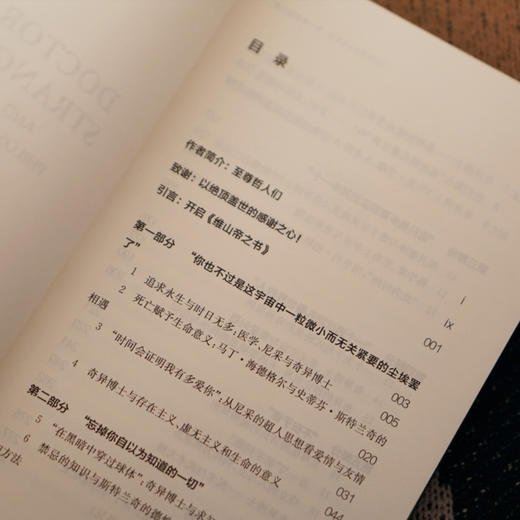 DOCTOR
STRANG
AND
PHILO
目 录
作者简介：至尊哲人们
致谢：以绝顶盖世的感谢之心！ i
引言：开启《维山帝之书》 ix
第一部分 “你也不过是这宇宙中一粒微小而无关紧要的尘埃罢
了” 001
1 追求永生与时日无多：医学、尼采与奇异博士 003
2 死亡赋予生命意义：马丁·海德格尔与史蒂芬·斯特兰奇的
相遇 005
3 “时间会证明我有多爱你”：从尼采的超人思想看爱情与友情 020
4 奇异博士与存在主义、虚无主义和生命的意义 031
第二部分 “忘掉你自以为知道的一切” 044
5 “在黑暗中穿过球体”：奇异博士与求
6 禁忌的知识与斯特兰奇的德
方法